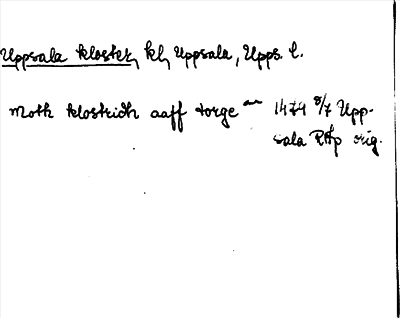 Uppsala kloster, kl, Uppsala, Upps. l.
moth klostridh aaff torge an 1474 8/7 Upp-
sala RAp orig.